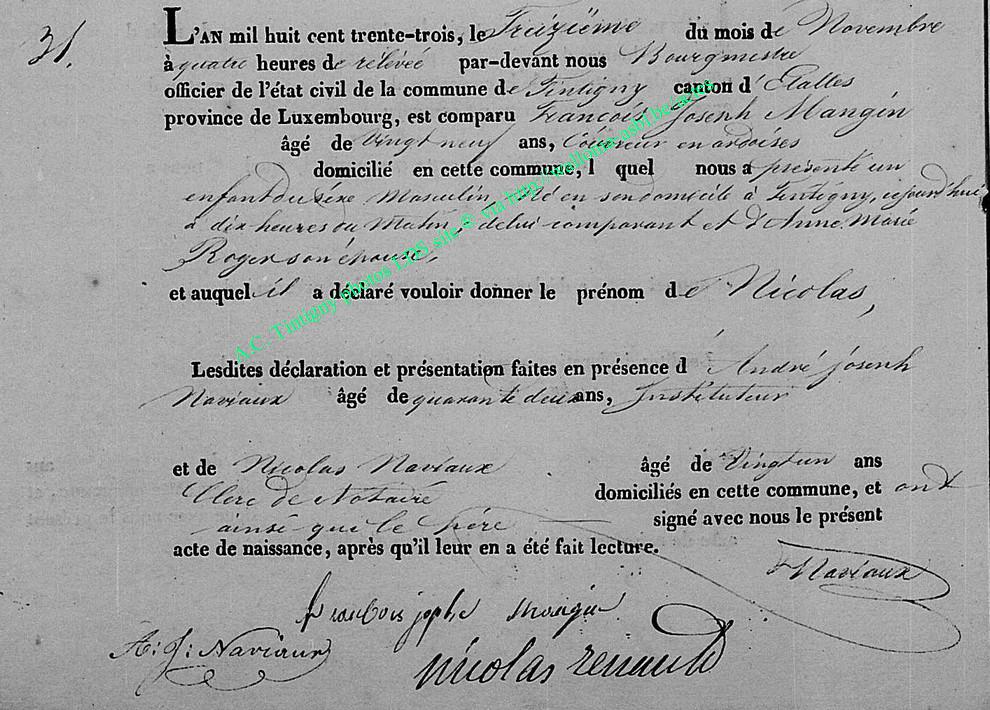 31.
L'AN mil huit cent trente-trois, le Treizième du mois de Novembre
à quatre heures de relévée par-devant nous Bourgmestre
officier de l'état civil de la commune de Tintigny canton d'Etalles
province de Luxembourg, est comparu François Joseph Mangin
âgé de Vingt neuf ans, Couvreur en ardoises
domicilié en cette commune, l quel nous a présenté un
enfant du séxe Masculin, Né en son domicile à Tintigny, cejourd'hui
à dix heures du Matin, de lui comparant et d'Anne Marie
Roger son épouse,
et auquel il a déclaré vouloir donner le prénom de Nicolas,
Lesdites déclaration et présentation faites en présence d'André joseph
Naviaux âgé de quarante deux ans, Instituteur
et de Nicolas Naviaux âgé de Vingtun ans
Clerc de Notaire domiciliés en cette commune, et ont
ainsi que le père signé avec nous le présent
acte de naissance, après qu'il leur en a été fait lecture.
Naviaux
francois jophe mangin
A: J: Naviaux
nicolas renauld
A.C. Tintigny photos LDS site © via http://wallonia.asbl.be/actes